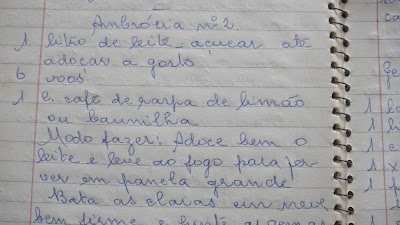 Ambrósia nº 2.
1 litrão de leite - açucar até
adoçar a gosto
6 ovos
1 c. café de raspa de limão
ou baunilha
Modo fazer: Adoce bem o
leite e leve ao fogo para fer-
ver em panela grande
Bata as claras em neve
bem firme e junte as gemas